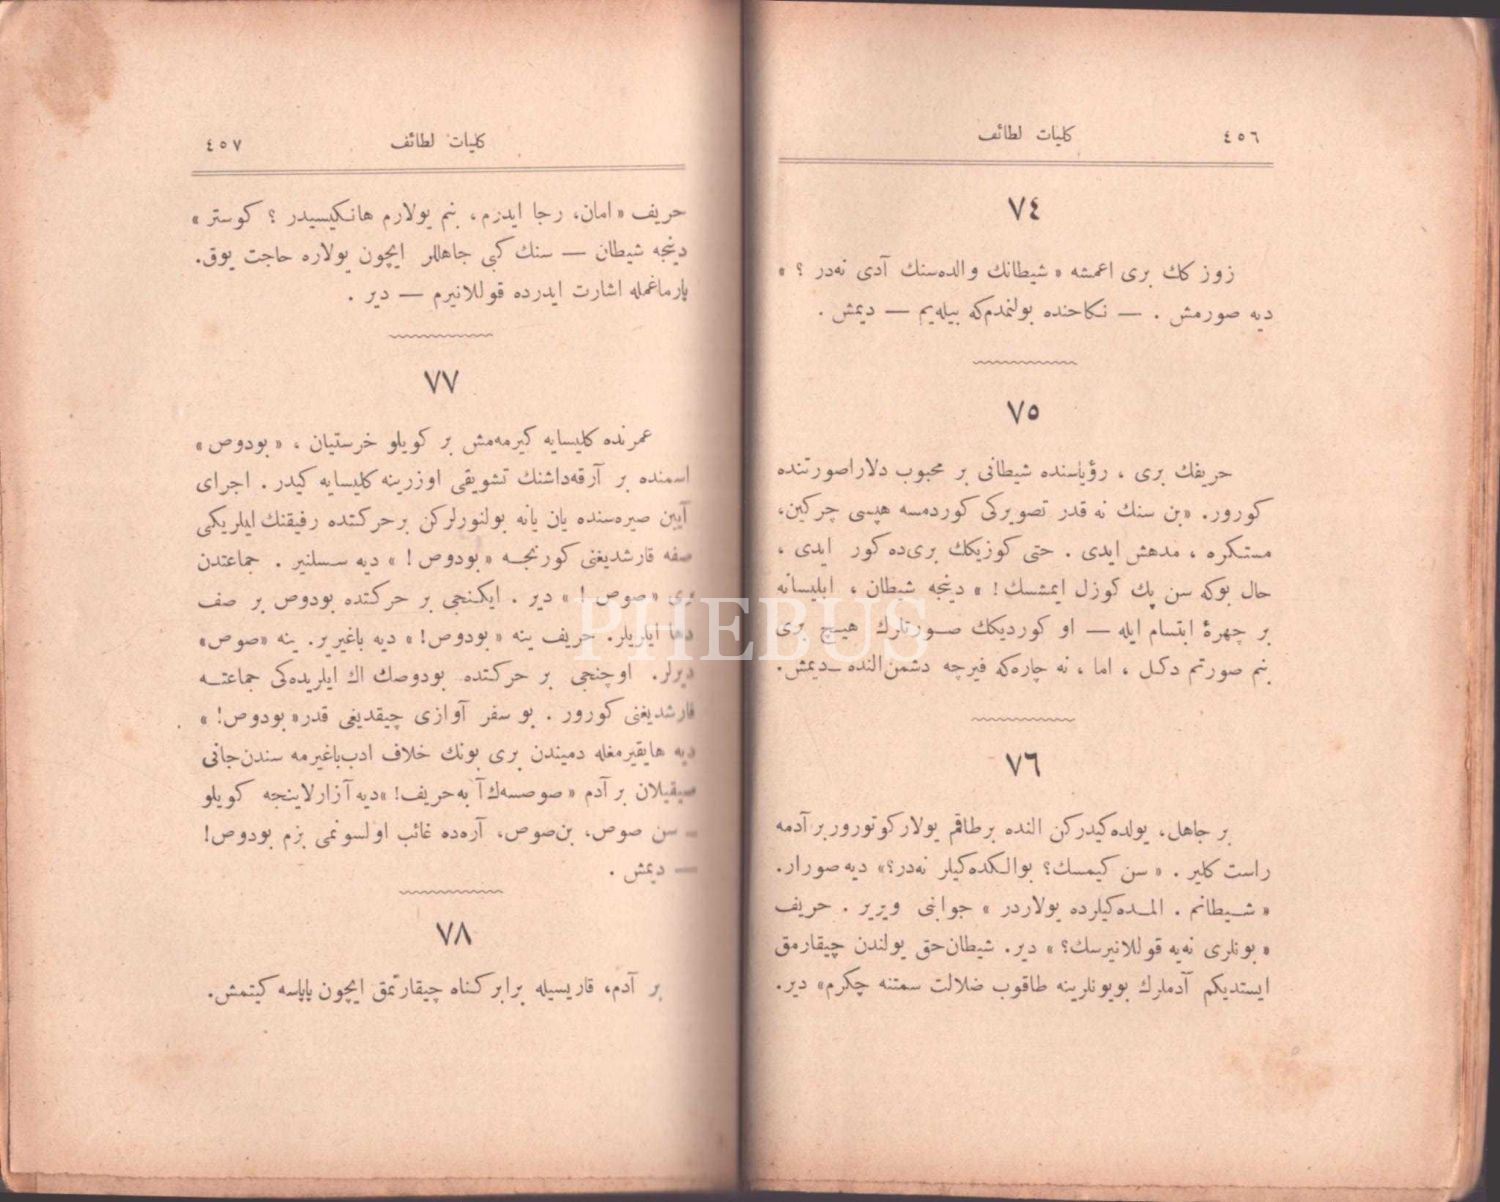 ٤٥٦
كليات لطائف
٧٤
زوزكك برى اعمشه « شيطانك والده‌سنك آدى نه‌در ؟ »
ديه صورمش . — نكاحنده بولنمدم‌كه بيله‌يم — ديمش .
٧٥
حريفك برى ، رؤياسنده شيطانى بر محبوب دلارا صورتنده
كورور. «بن سنك نه قدر تصويركى كوردمسه هپسى چركين،
مستكره ، مدهش ايدى . حتى كوزيكك برى‌ده كور ايدى ،
حال بوكه سن پك كوزل ايمشسك! » دينجه شيطان ، ابليسانه
بر چهرۀ ابتسام ايله — او كورديكك صورتلرك هيچ برى
بنم صورتم دكل ، اما ، نه چاره‌كه فيرچه دشمن النده — ديمش.
٧٦
بر جاهل، يولده كيدركن النده برطاقم يولار كوتورور بر آدمه
راست كلير . « سن كيمسك؟ بو الكده‌كيلر نه‌در؟» ديه صورار.
« شيطانم . المده‌كيلرده يولاردر » جوابنى ويرير . حريف
« بونلرى نه‌يه قوللانيرسك؟ » دير. شيطان حق يولندن چيقارمق
ايستديكم آدملرك بويونلرينه طاقوب ضلالت سمتنه چكرم» دير.
٤٥٧
كليات لطائف
حريف « امان، رجا ايدرم، بنم يولارم هانكيسيدر ؟ كوستر »
دينجه شيطان — سنك كبى جاهللر ايچون يولاره حاجت يوق.
پارماغمله اشارت ايدرده قوللانيرم — دير .
٧٧
عمرنده كليسايه كيرمه‌مش بر كويلو خرستيان ، « بودوص »
اسمنده بر آرقه‌داشنك تشويقى اوزرينه كليسايه كيدر . اجراى
آيين صيره‌سنده يان يانه بولنورلركن بر حركتده رفيقنك ايلريكى
صفه قارشديغنى كورنجه « بودوص ! » ديه سسلنير . جماعتدن
برى « صوص ! » دير . ايكنجى بر حركتده بودوص بر صف
دها ايلريلر. حريف ينه « بودوص! » ديه باغيرير. ينه «صوص»
ديرلر. اوچنجى بر حركتده بودوصك اك ايلريده‌كى جماعته
قارشديغنى كورور . بو سفر آوازى چيقديغى قدر « بودوص! »
ديه هايقيرمغله دميندن برى بونك خلاف ادب باغيرمه سندن جانى
صيقيلان بر آدم « صوصسه‌ك آ به حريف! » ديه آزارلاينجه كويلو
— سن صوص، بن صوص، آره‌ده غائب اولسونمى بزم بودوص!
— ديمش .
٧٨
بر آدم، قاريسيله برابر كناه چيقارتمق ايچون پاپاسه كيتمش.
PHEBUS